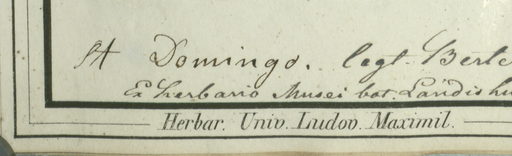 St Domingo. legt. Berte
Ex herbario Musei bot. Landish
Herbar. Univ. Ludov. Maximil.